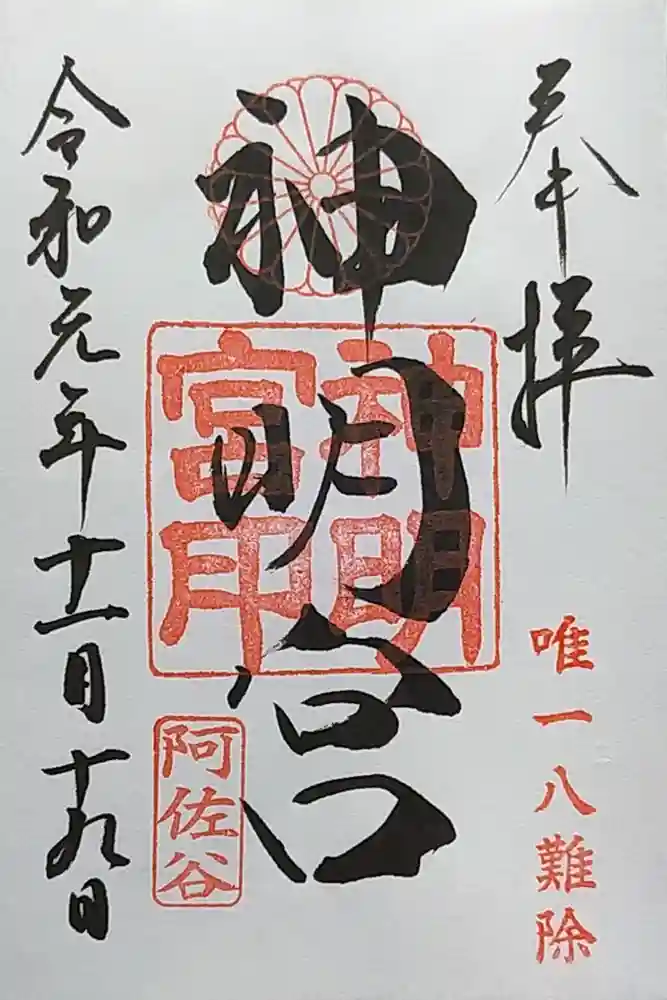 奉拝
唯一八難除
神明宮
神明宮印
阿佐谷
令和元年十一月十九日